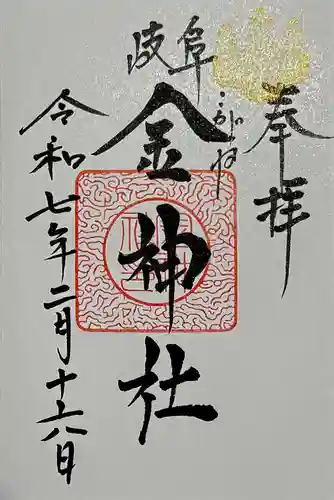 奉拝
岐阜
こがねの
金神社
令和七年二月十六日